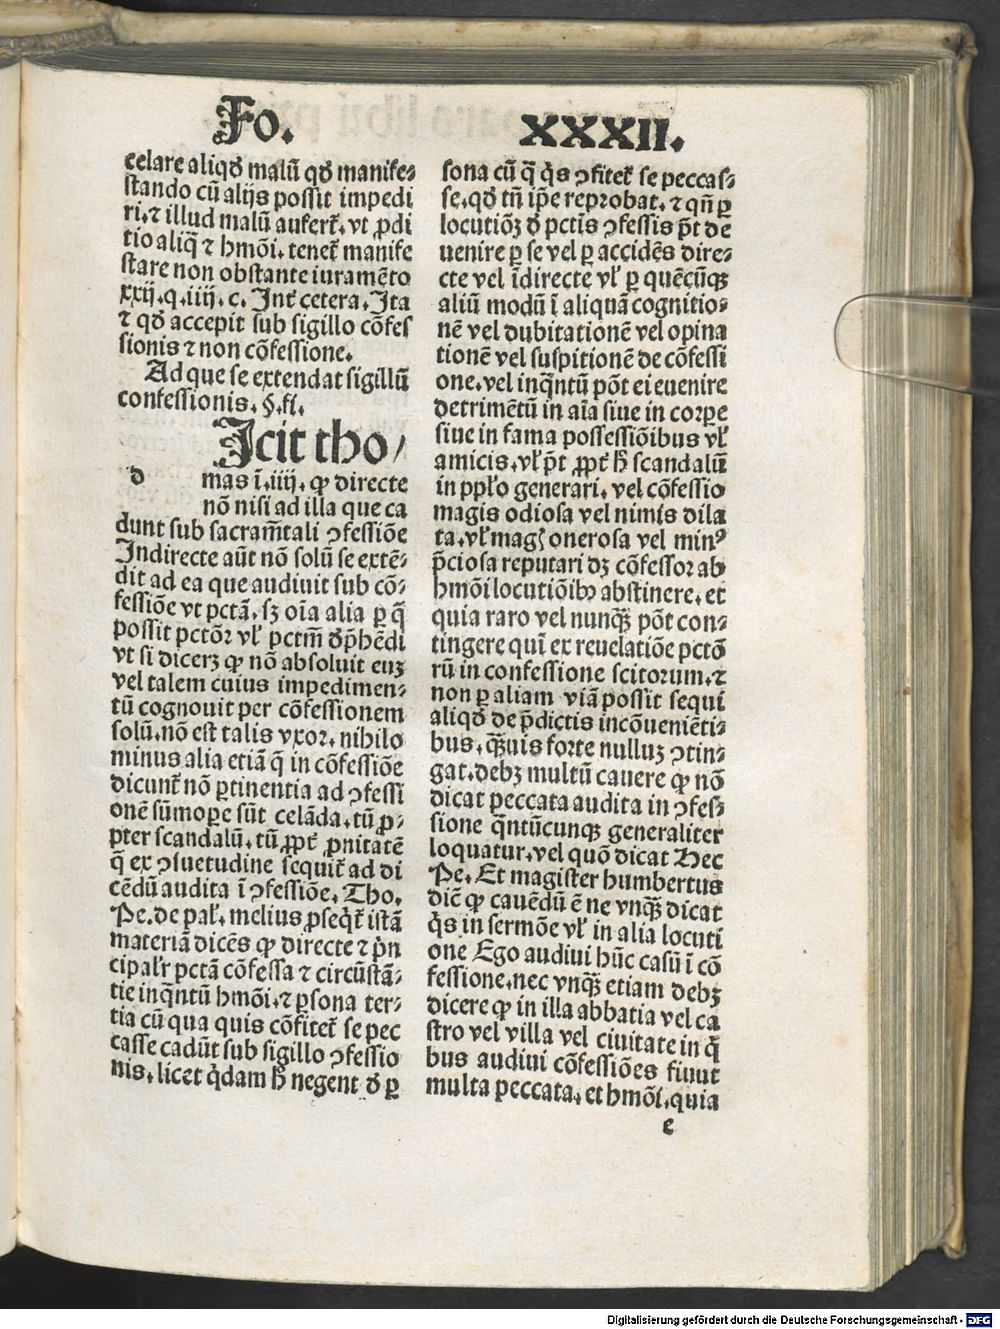 Fo. XXXII.
celare aliqd̕ malũ qd̕ manife⸗
stando cũ alijs possit impedi
ri. ⁊ illud malũ aufert᷑. vt ꝓdi
tio aliq̃ ⁊ hmõi. tenet᷑ manife
stare non obstante iuramẽto
xxij. q. iiij. c. Int᷑ cetera. Ita
⁊ qd̕ accepit sub sigillo cõfes
sionis ⁊ non cõfessione.
Ad que se extendat sigillũ
confessionis. §. fi.
d Icit tho/
mas ĩ. iiij. ꝙ directe
nõ nisi ad illa que ca
dunt sub sacram̃tali ꝯfessiõe
Indirecte aũt nõ solũ se extẽ⸗
dit ad ea que audiuit sub cõ⸗
fessiõe vt pctã. sꝫ oĩa alia ꝑ q̃
possit pctõꝛ vl̕ pctm̃ dp̃hẽdi
vt si dicerꝫ ꝙ nõ absoluit euꝫ
vel talem cuius impedimen⸗
tũ cognouit per cõfessionem
solũ. nõ est talis vxoꝛ. nihilo
minus alia etiã q̃ in cõfessiõe
dicunt᷑ nõ ꝑtinentia ad ꝯfessi
onẽ sũmoꝑe sũt celãda. tũ ꝓ⸗
pter scandalũ. tũ ꝓpt᷑ ꝓnitatẽ
q̃ ex ꝯsuetudine sequit᷑ ad di
cẽdũ audita ĩ ꝯfessiõe. Tho.
Pe. de pal̕. melius ꝓseq̃t᷑ istã
materiã dicẽs ꝙ directe ⁊ p̃n
cipal̕r pctã cõfessa ⁊ circũstã⸗
tie inq̃ntũ hmõi. ⁊ ꝑsona ter⸗
tia cũ qua quis cõfitet᷑ se pec
casse cadũt sub sigillo ꝯfessio
nis. licet q̃dam h̕ negent d̕ ꝑ
sona cũ q̃ q̃s ꝯfitet᷑ se peccas⸗
se. qd̕ tñ ip̃e reprobat. ⁊ qñ ꝑ
locutiõꝫ d̕ pctis ꝯfessis p̃t de
uenire ꝑ se vel ꝑ accidẽs dire⸗
cte vel ĩdirecte vl̕ ꝑ quẽcũqꝫ
aliũ modũ ĩ aliquã cognitio⸗
nẽ vel dubitationẽ vel opina
tionẽ vel suspitionẽ de cõfessi
one. vel inq̃ntũ põt ei euenire
detrimẽtũ in aĩa siue in corpe
siue in fama possessiõibus vl̕
amicis. vl̕ p̃t ꝓpt᷑ h̕ scandalũ
in pp̕lo generari. vel cõfessio
magis odiosa vel nimis dila
ta. vl̕ mag̕ onerosa vel minꝰ
p̃ciosa reputari dꝫ cõfessor ab
hmõi locutiõibꝫ abstinere. et
quia raro vel nunq̃ꝫ põt con⸗
tingere quĩ ex reuelatiõe pctõ
rũ in confessione scitorum. ⁊
non ꝑ aliam viã possit sequi
aliqd̕ de p̃dictis incõueniẽti⸗
bus. q̃ꝫuis forte nulluꝫ ꝯtin⸗
gat. debꝫ multũ cauere ꝙ nõ
dicat peccata audita in ꝯfes⸗
sione q̃ntũcunqꝫ generaliter
loquatur. vel quõ dicat Hec
Pe. Et magister humbertus
dic̃ ꝙ cauẽdũ ẽ ne vnq̃ꝫ dicat
q̃s in sermõe vl̕ in alia locuti
one Ego audiui hũc casũ ĩ cõ
fessione. nec vnq̃ꝫ etiam debꝫ
dicere ꝙ in illa abbatia vel ca
stro vel villa vel ciuitate in q̃
bus audiui cõfessiões fiunt
multa peccata. et hmõi. quia
e
Digitalisierung gefördert durch die Deutsche Forschungsgemeinschaft - DFG